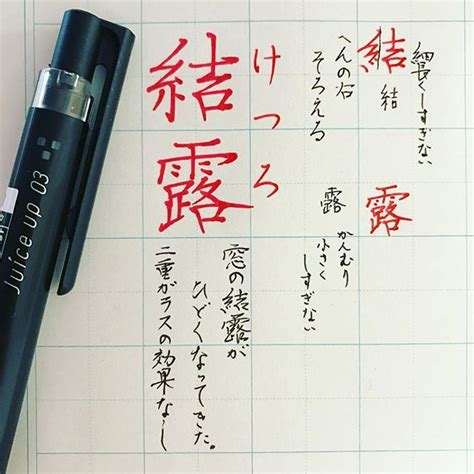 細長くしすぎない
結
結
へんの右
そろえる
露
かんむり
小さく
しすぎない
露
けつろ
結露
窓の結露が
ひどくなってきた。
二重ガラスの効果なし
Juice up 03